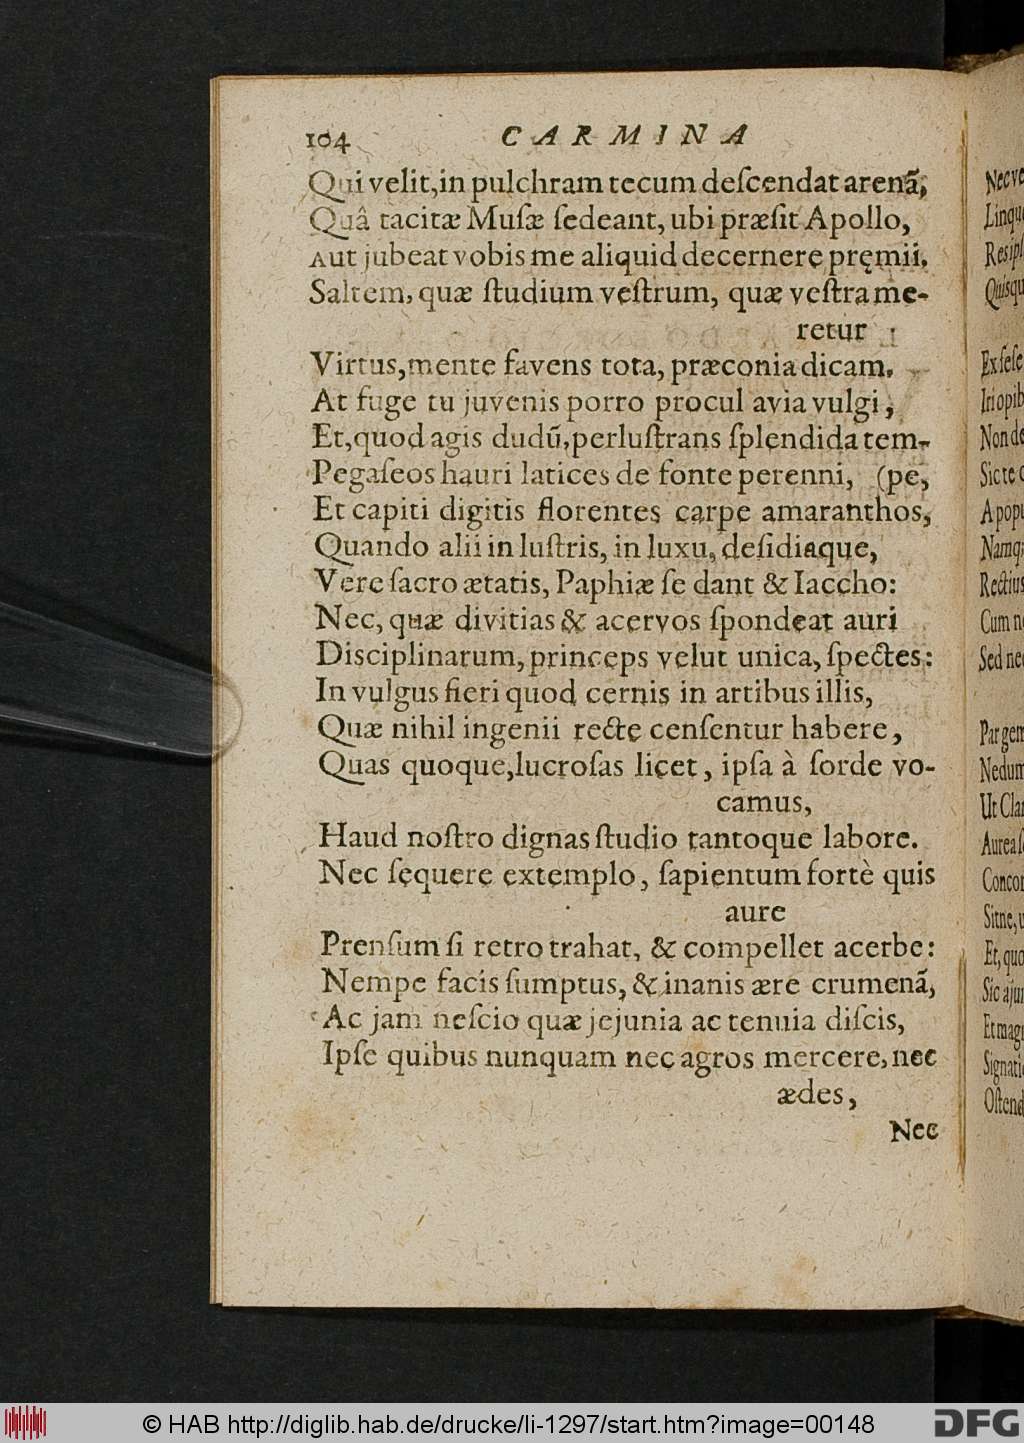 104 CARMINA
Qui velit,in pulchram tecum deſcendat arenã,
Quâ tacitæ Muſæ ſedeant, ubi præſit Apollo,
Aut jubeat vobis me aliquid decernere pręmii.
Saltem, quæ ſtudium veſtrum, quæ veſtra me-
retur
Virtus,mente favens tota, præconia dicam.
At fuge tu juvenis porro procul avia vulgi,
Et,quod agis dudũ,perluſtrans ſplendida tem-
Pegaſeos hauri latices de fonte perenni, (pe,
Et capiti digitis florentes carpe amaranthos,
Quando alii in luſtris, in luxu, deſidiaque,
Vere ſacro ætatis, Paphiæ ſe dant & Iaccho:
Nec, quæ divitias & acervos ſpondeat auri
Disciplinarum, princeps velut unica, ſpectes:
In vulgus fieri quod cernis in artibus illis,
Quæ nihil ingenii recte cenſentur habere,
Quas quoque,lucroſas licet, ipſa à ſorde vo-
camus,
Haud noſtro dignas ſtudio tantoque labore.
Nec ſequere extemplo, ſapientum fortè quis
aure
Prenſum ſi retro trahat, & compellet acerbe:
Nempe facis ſumptus, & inanis ære crumenã,
Ac jam neſcio quæ jejunia ac tenuia diſcis,
Ipſe quibus nunquam nec agros mercere, nec
ædes,
Nec
Nec ve
Linqu
Reſipſ
Quisqu
Ex ſeſe
Iri opib
Non de
Sic te c
A popu
Namq;
Rectius
Cum n
Sed nec
Par gem
Nedum
Ut Clar
Aurea ſ
Concor
Sitne, u
Et, quo
Sic ajun
Et mag
Signati
Oſtend
© HAB http://diglib.hab.de/drucke/li-1297/start.htm?image=00148
DFG